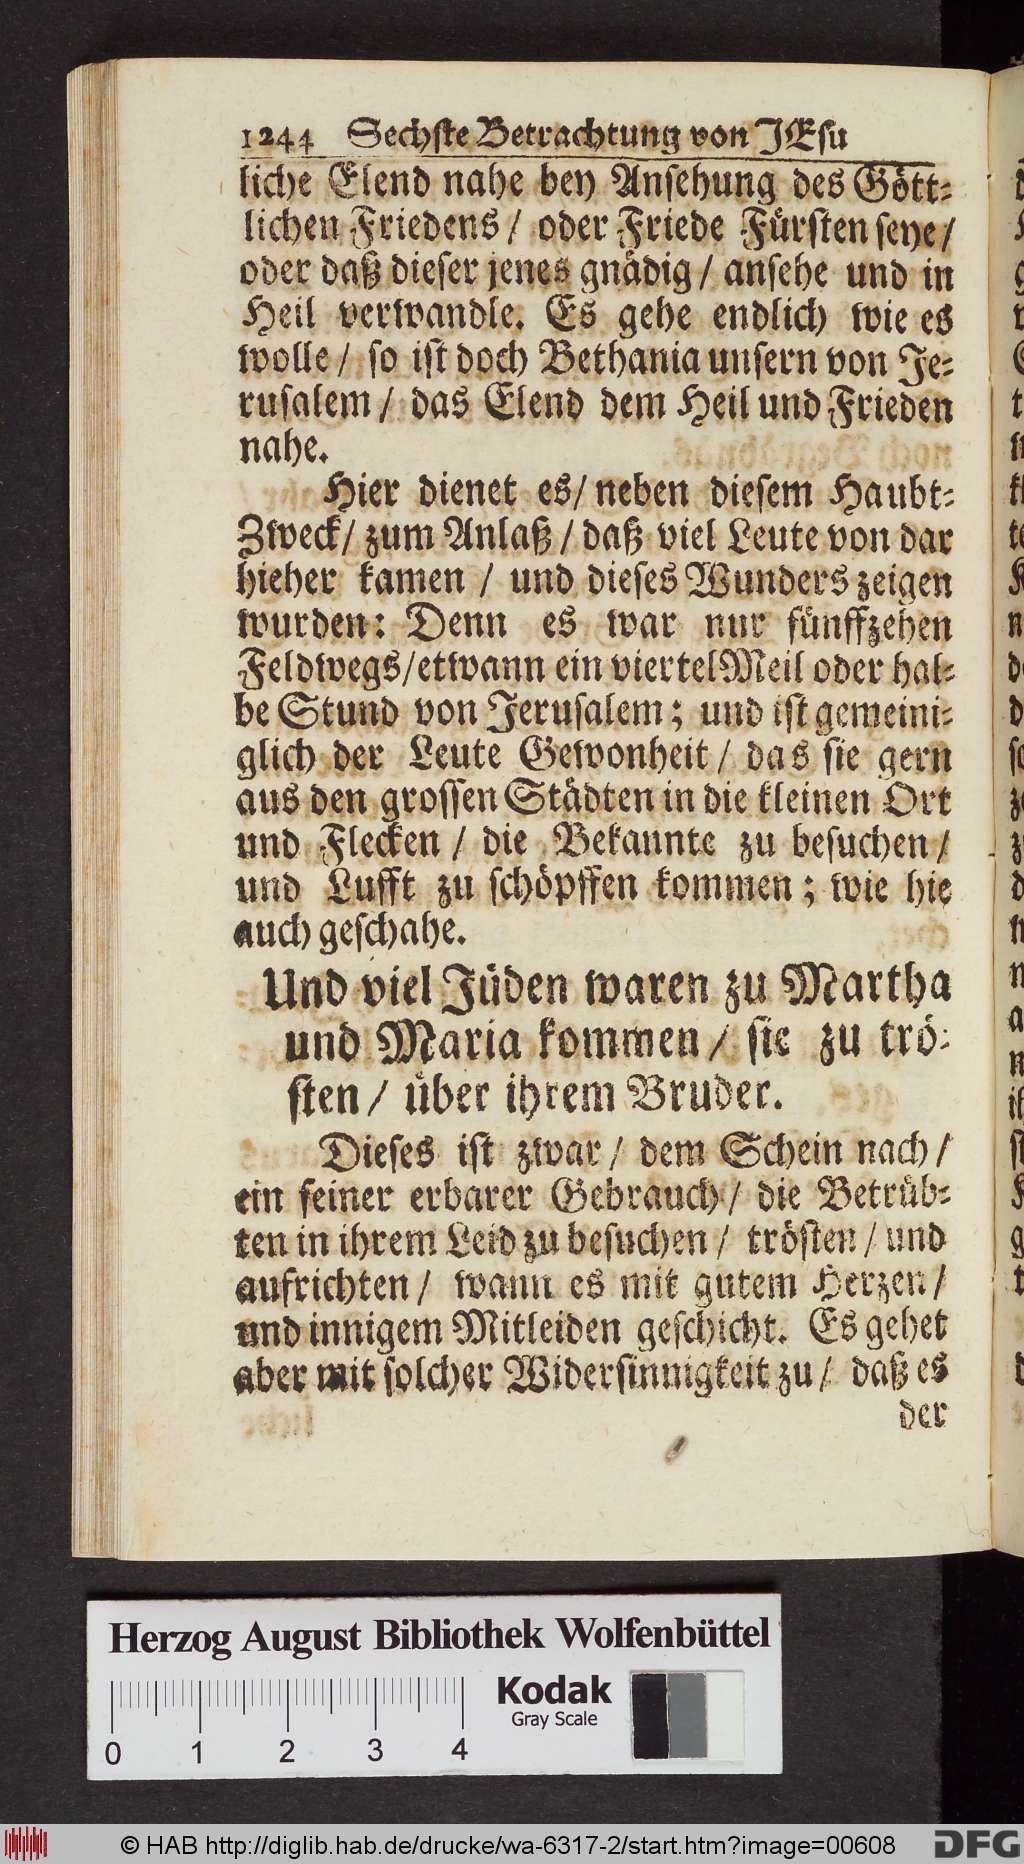 1244 Sechste Betrachtung von JEsu
liche Elend nahe bey Ansehung des Gött-
lichen Friedens / oder Friede Fürsten seye /
oder daß dieser jenes gnädig / ansehe und in
Heil verwandle. Es gehe endlich wie es
wolle / so ist doch Bethania unfern von Je-
rusalem / das Elend dem Heil und Frieden
nahe.
Hier dienet es / neben diesem Haubt-
Zweck / zum Anlaß / daß viel Leute von dar
hieher kamen / und dieses Wunders zeigen
wurden: Denn es war nur fünffzehen
Feldwegs / etwann ein viertel Meil oder hal-
be Stund von Jerusalem; und ist gemeini-
glich der Leute Gewonheit / das sie gern
aus den grossen Städten in die kleinen Ort
und Flecken / die Bekannte zu besuchen /
und Lufft zu schöpffen kommen; wie hie
auch geschahe.
Und viel Jüden waren zu Martha
und Maria kommen / sie zu trö-
sten / über ihrem Bruder.
Dieses ist zwar / dem Schein nach /
ein feiner erbarer Gebrauch / die Betrüb-
ten in ihrem Leid zu besuchen / trösten / und
aufrichten / wann es mit gutem Herzen /
und innigem Mitleiden geschicht. Es gehet
aber mit solcher Widersinnigkeit zu / daß es
der
Herzog August Bibliothek Wolfenbüttel
Kodak
Gray Scale
0 1 2 3 4
© HAB http://diglib.hab.de/drucke/wa-6317-2/start.htm?image=00608
DFG